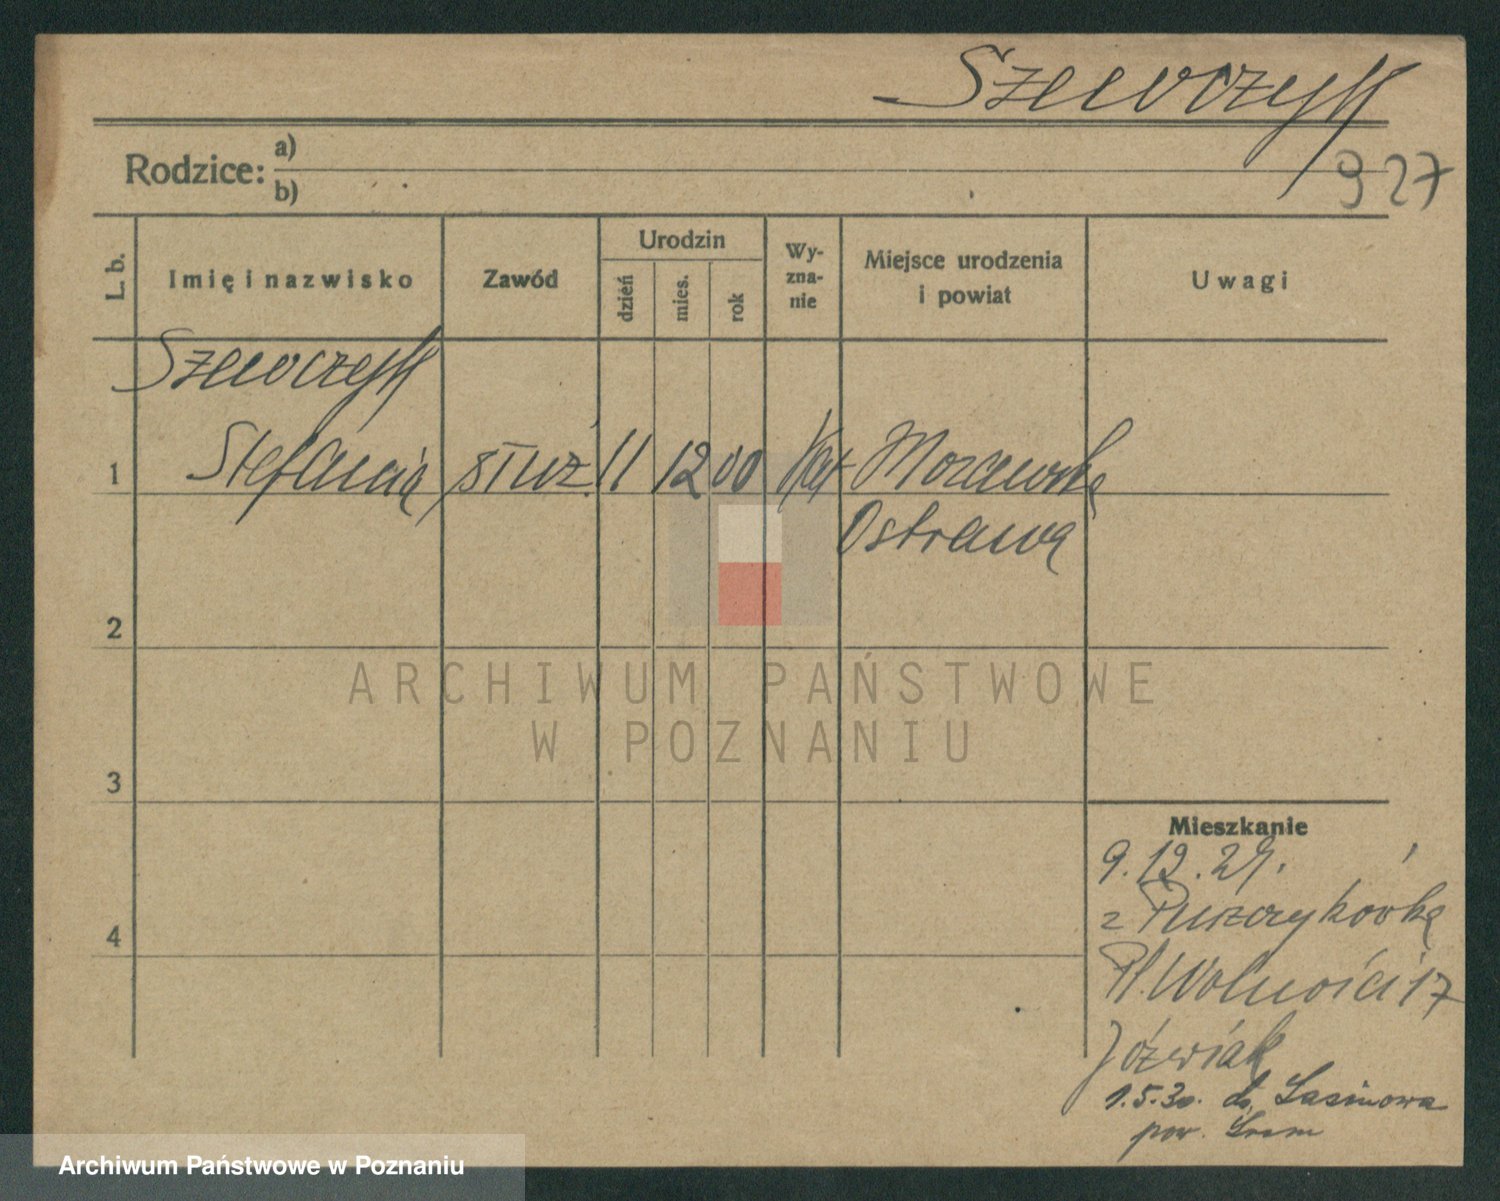 Szewczyk
927
Rodzice: a)
b)
L. b. Imię i nazwisko Zawód Urodzin dzień mies. rok Wy-zna-nie Miejsce urodzenia i powiat Uwagi
Szewczyk
1 Stefania służ. 11 12 00 kat Morawska
Ostrawa
2
3
4
Mieszkanie
9.12.29.
z Puszczykówka
Pl. Wolności 17
Jóźwiak
1.5.30. do
pow. Śrem
ARCHIWUM PAŃSTWOWE
W POZNANIU
Archiwum Państwowe w Poznaniu